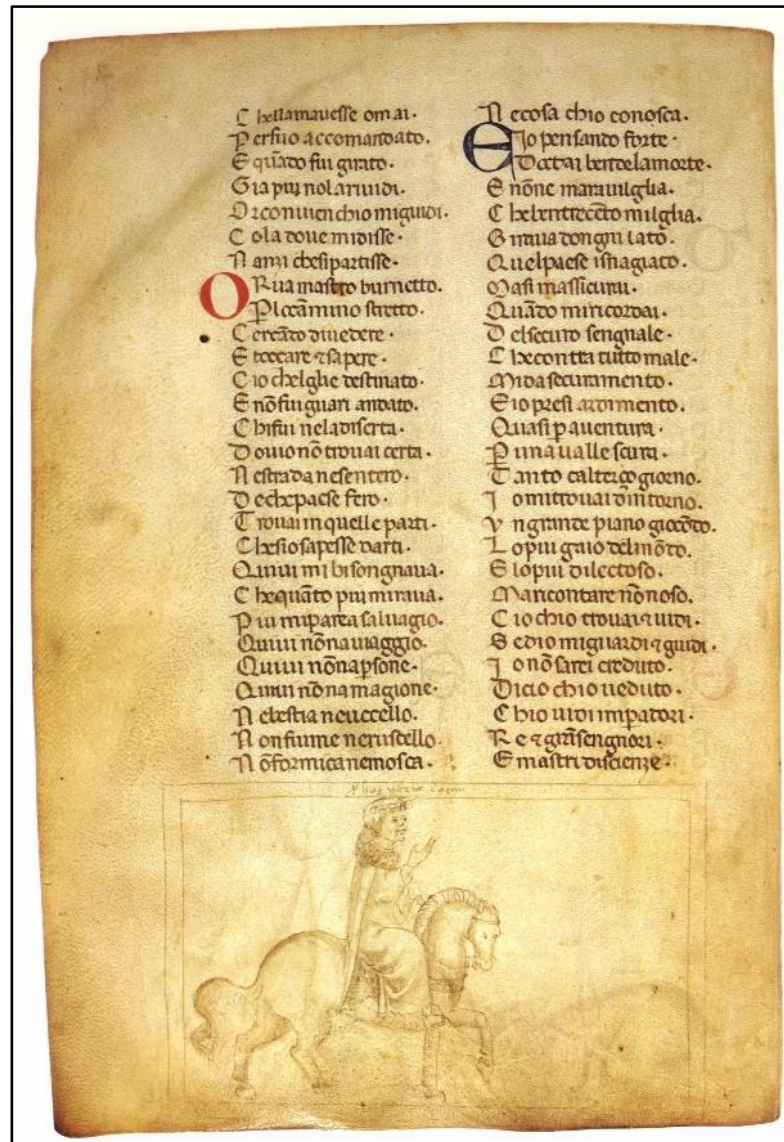 C hellamauesse om ai.
P ersuo accomandato.
E quãdo fui girato.
G ia piu nolariuidi.
O r conuien chio miguidi.
C ola doue midisse.
N anzi chesipartisse.
O R ua mastro burnetto.
P loeãmino stretto.
C ercãdo diuedere.
E toccare ⁊ sapere.
C io chelglie destinato.
E nõ fui guari andato.
C hifui neladiserta.
D ouio nõ trouai certa.
N estrada nesentero.
D echepaese fero.
T rouai in quelle parti.
C hesiosapesse darti.
Q uiui mi bisongnaua.
C hequãto piu miraua.
P iu miparea saluagio.
Q uiui nõna uiaggio.
Q uiui nõnapsone.
Q uiui nõna magione.
N ebestia neuccello.
N onfiume neruscello.
N õformicanemosca.
N ecosa chio conosca.
E Jo pensando forte.
Dottai bendelamorte.
E nõne marauilglia.
C hebentrecẽto milglia.
G iraua dongni lato.
Q uelpaese isnagiato.
M asi massicurai.
Q uãdo miricordai.
D elsecuro sengnale.
C hecontra tutto male.
M ida securamento.
E io presi ardimento.
Q uasi p auentura.
P una ualle scura.
T anto calterço giorno.
J omitrouai dintorno.
V n grande piano giocõdo.
L opiu gaio delmõdo.
E lopiu dilectoso.
M aricontare nõnoso.
C io chio trouai ⁊ uidi.
S edio miguardi ⁊ guidi.
J o nõ sarei creduto.
D icio chio ueduto.
C hio uidi impadori.
R e ⁊ grãsengnori.
E mastri discienze.